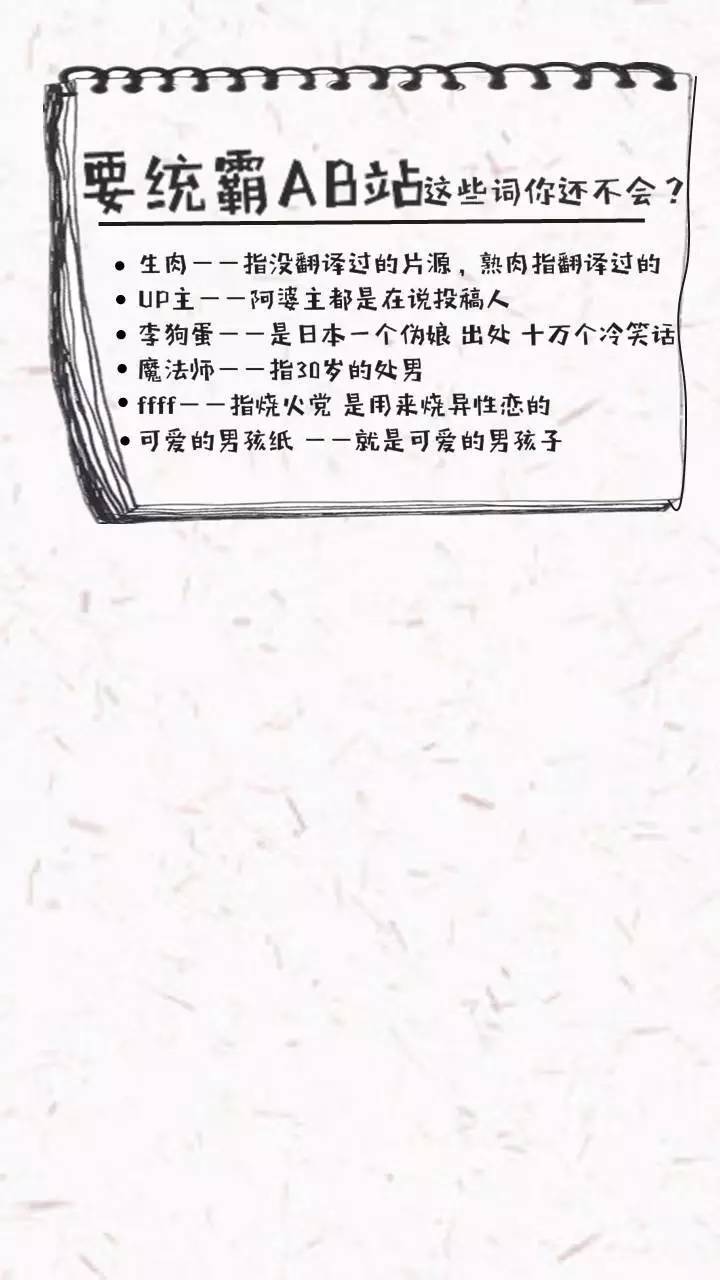 要统霸AB站这些词你还不会？
生肉——指没翻译过的片源，熟肉指翻译过的
UP主——阿婆主都是在说投稿人
李狗蛋——是日本一个伪娘 出处 十万个冷笑话
魔法师——指30岁的处男
ffff——指烧火党 是用来烧异性恋的
可爱的男孩纸 ——就是可爱的男孩子